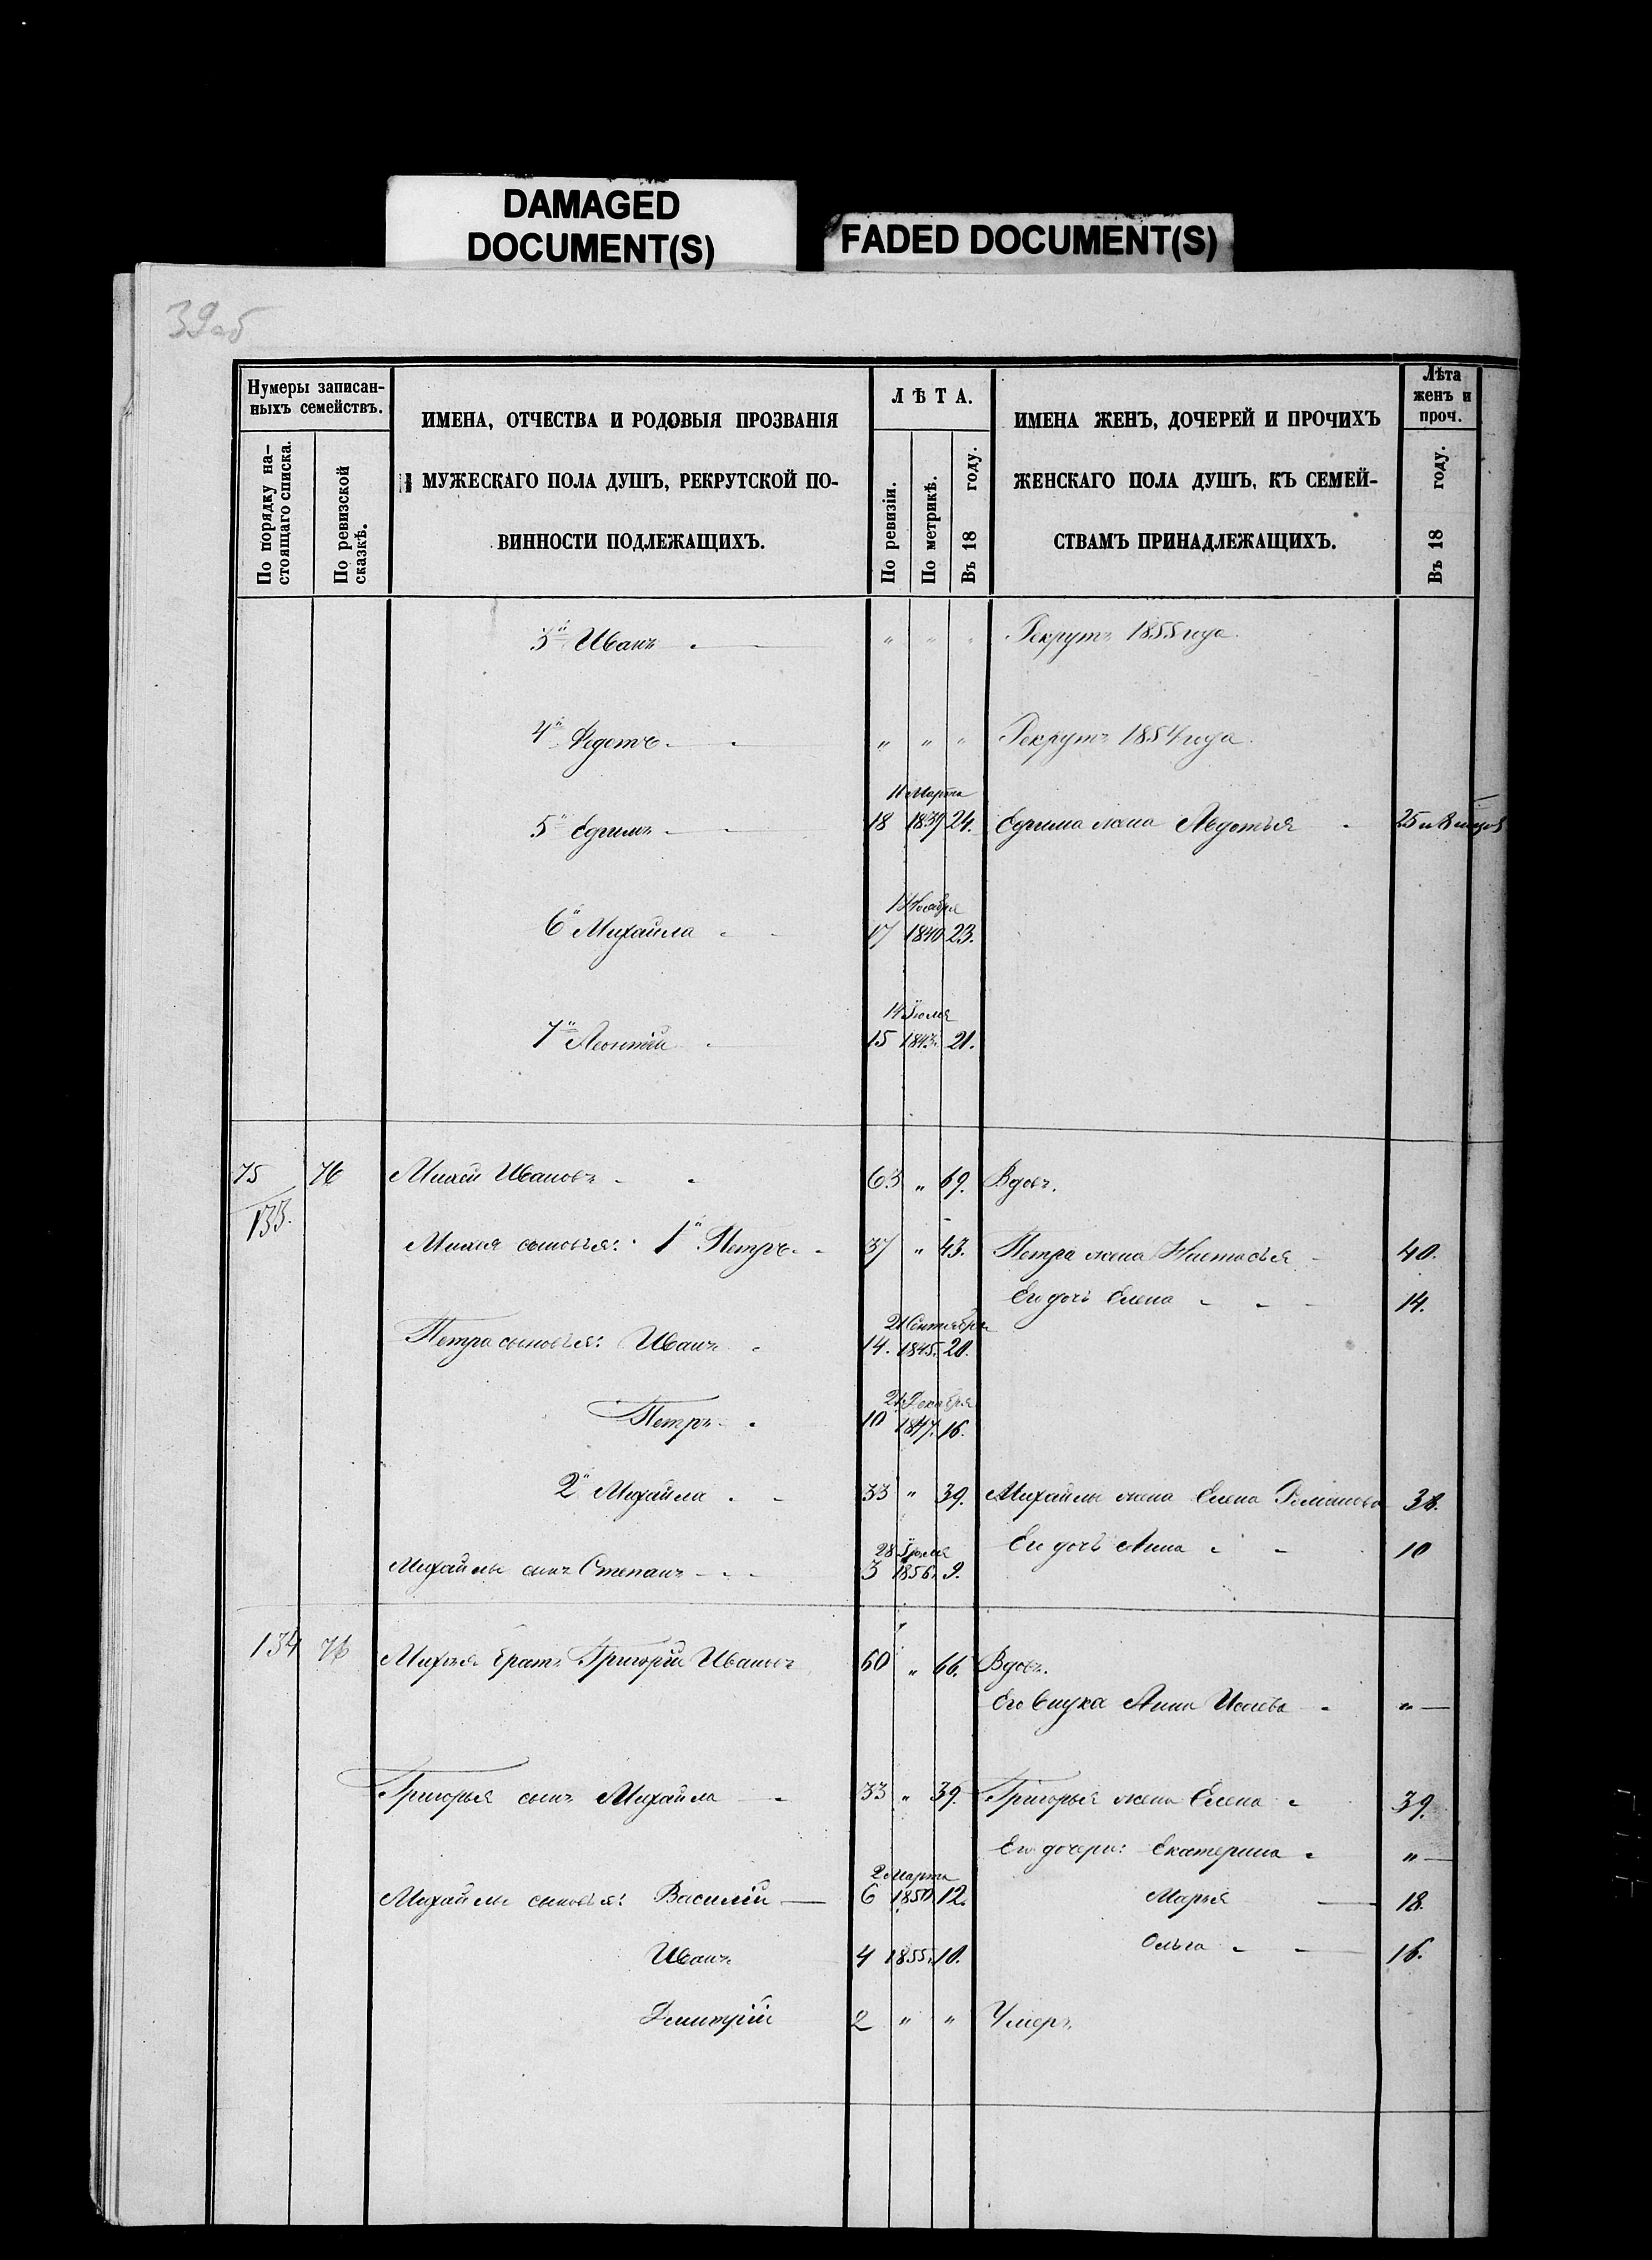 DAMAGED
DOCUMENT(S)
FADED DOCUMENT(S)
39об
Нумеры записан-
ныхъ семействъ.
По порядку на-
стоящаго списка.
По ревизской
сказкѣ.
ИМЕНА, ОТЧЕСТВА И РОДОВЫЯ ПРОЗВАНІЯ
МУЖЕСКАГО ПОЛА ДУШЪ, РЕКРУТСКОЙ ПО-
ВИННОСТИ ПОДЛЕЖАЩИХЪ.
Л Ѣ Т А.
По ревизіи.
По метрикѣ.
Въ 18 году.
ИМЕНА ЖЕНЪ, ДОЧЕРЕЙ И ПРОЧИХЪ
ЖЕНСКАГО ПОЛА ДУШЪ, КЪ СЕМЕЙ-
СТВАМЪ ПРИНАДЛЕЖАЩИХЪ.
Лѣта
женъ и
проч.
Въ 18 году.
3й Иванъ " " " Рекрутъ 1855 года.
4й Федотъ " " " Рекрутъ 1854 года.
11 Марта
5й Ефимъ 18 1839 24. Ефима жена Авдотья 25
Ноября
6й Михайла 17 1840 23.
14 Іюля
7й Леонтій 15 1843. 21.
75 76 Михей Ивановъ 63 " 69. Вдовъ.
133.
Михея сыновья: 1й Петръ 37 " 43. Петра жена Настасья 40.
Его дочь Елена 14.
Сентября
Петра сыновья: Иванъ 14. 1845. 20.
Декабря
Петръ 10 1847. 16.
2й Михайла 33 " 39. Михайлы жена Елена 38.
28 Его дочь Анна 10
Михайлы сынъ Степанъ 3 1856. 9.
134 76 Михея братъ Григорій Ивановъ 60 " 66. Вдовъ.
Его внука Анна "
Григорья сынъ Михайла 33 " 39. Григорья жена Елена 39.
Его дочери: Екатерина "
2 Марта
Михайлы сыновья: Василій 6 1850. 12. Марья 18.
Иванъ 4 1855. 10. Ольга 16.
Дмитрій 2 " " Умеръ